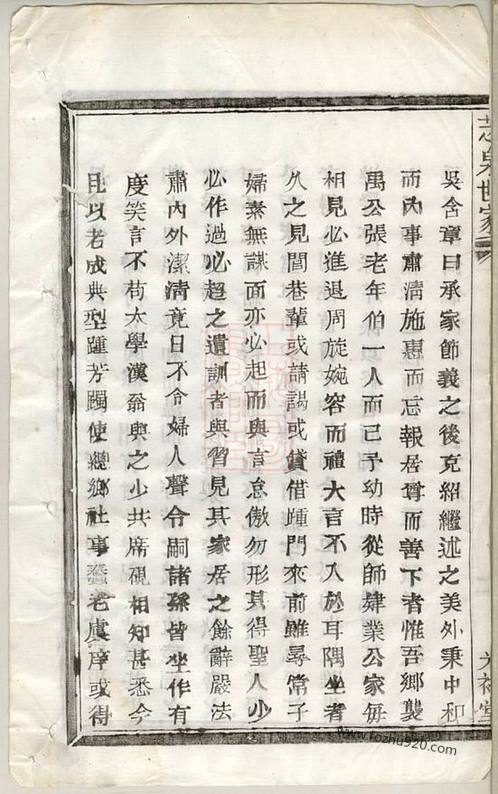 吳含章曰承家節義之後克紹繼述之美外秉中和
而內事肅清施惠而忘報居尊而善下者惟吾鄉襲
禹公張老年伯一人而已予幼時從師肄業公家每
相見必進退周旋婉容而禮大言不入於耳隅坐者
久之見閭巷輩或請謁或貸借踵門來前雖尋常子
婦素無謀面亦必起而與言怠傲勿形其得聖人少
必作過必趨之遺訓者與習見其家居之餘辭嚴法
肅內外潔清竟日不令婦人聲令嗣諸孫皆坐作有
度笑言不苟太學漢翁與之少共席硯相知甚悉今
且以老成典型踵芳躅使繼鄉社事蚕老虞庠或得
世家
堂
www.fozhu920.com